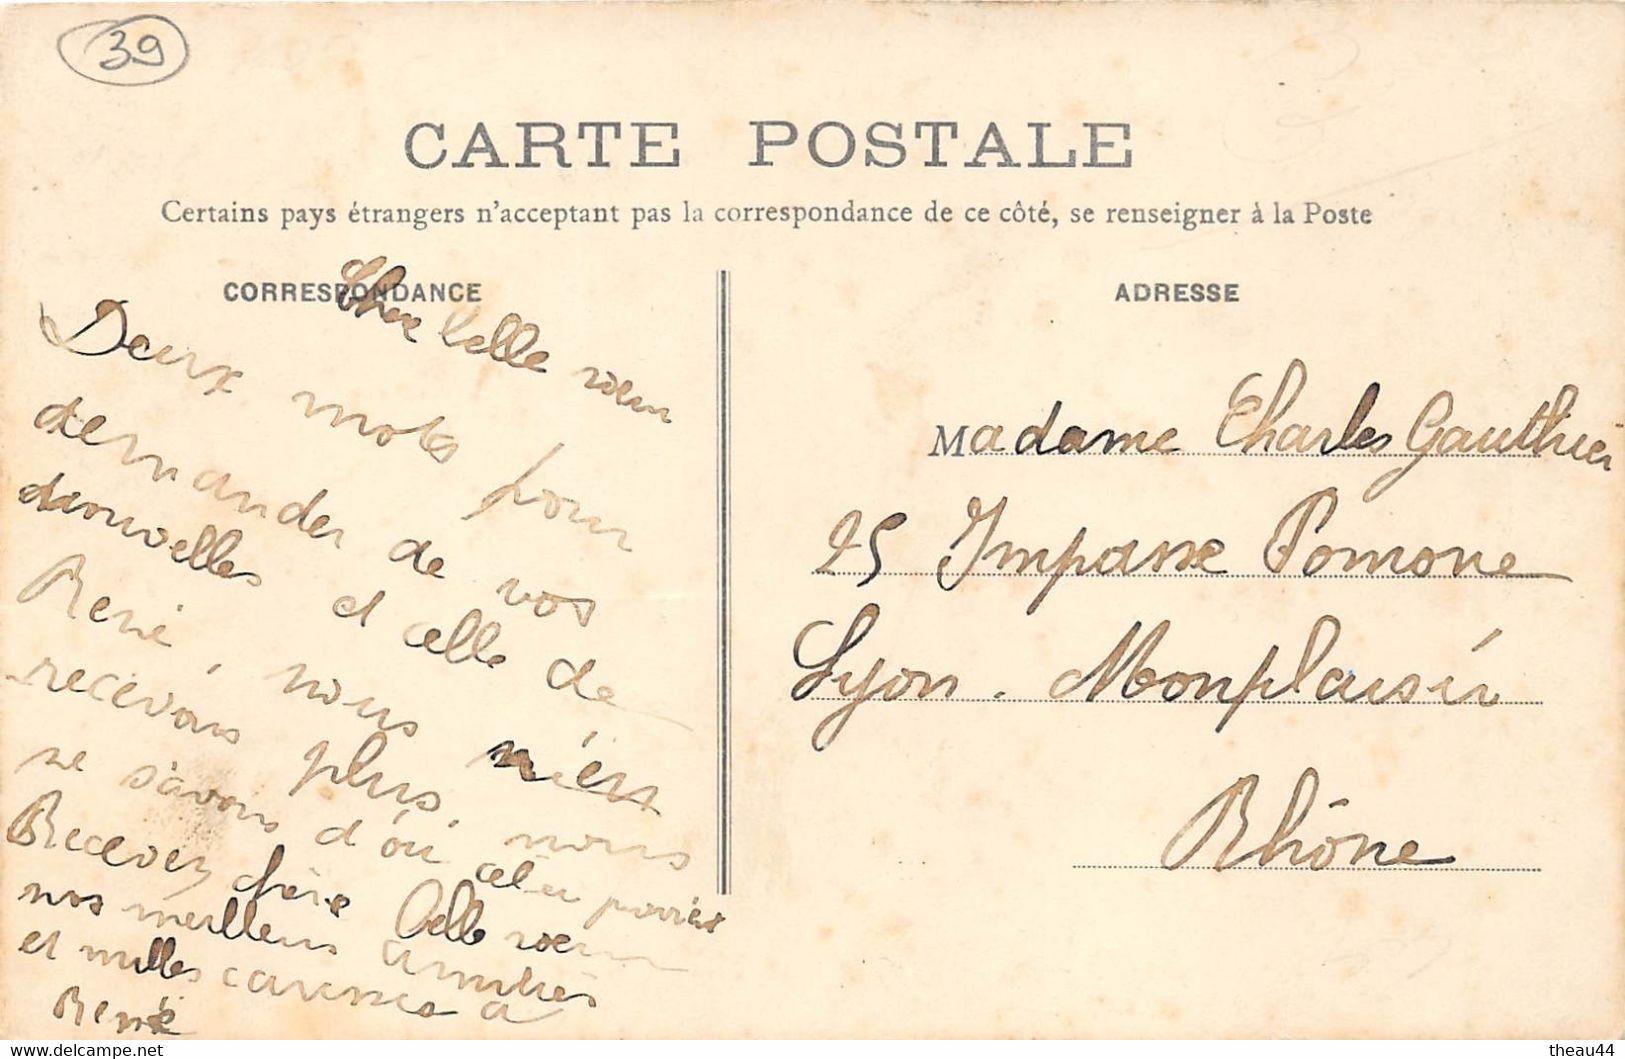 39
CARTE POSTALE
Certains pays étrangers n'acceptant pas la correspondance de ce côté, se renseigner à la Poste
CORRESPONDANCE
Chere belle sœur
Deux mots pour
demander de vos
nouvelles et celle de
René, nous n'en
recevons plus, nous
ne savons d'où cel en
Recevez chère belle sœur
nos meilleurs amitiés
et milles caresses a
René
ADRESSE
Madame Charles Gauthier
25 Impasse Pomone
Lyon. Monplaisir
Rhône
theau44